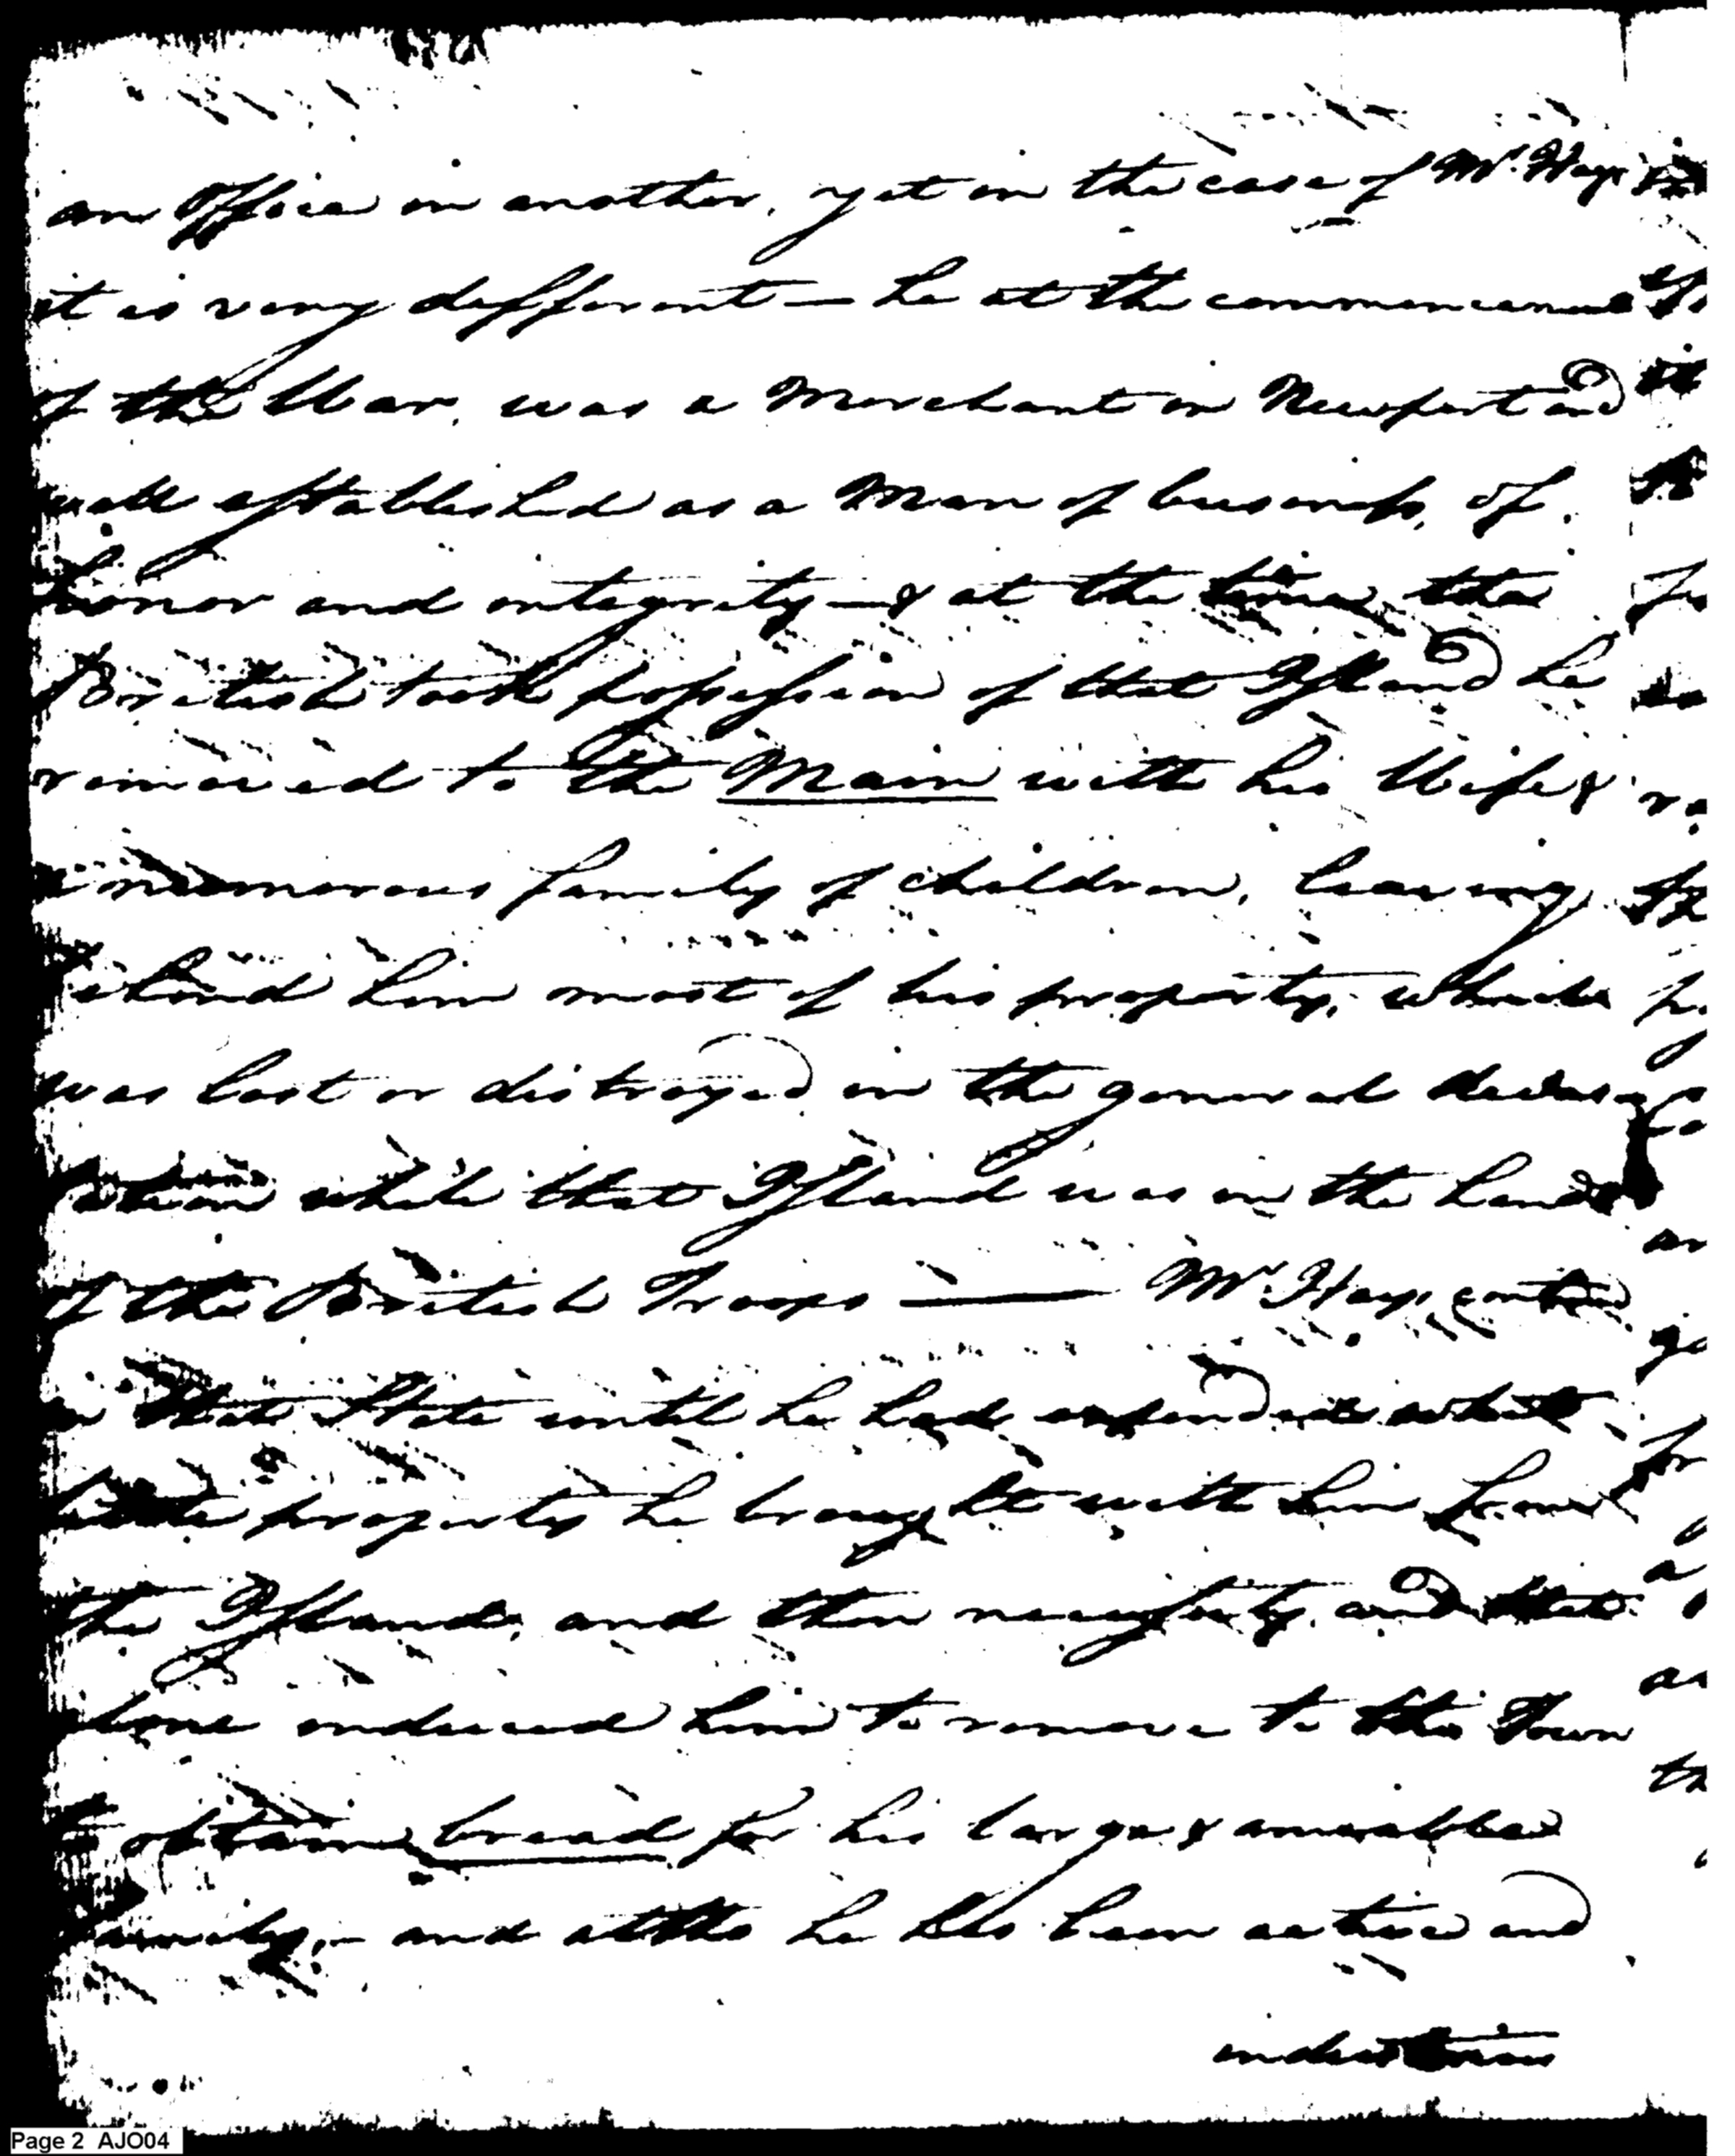 an Office in another, yet in the case of Mr. Hays
it is very different — he at the commencement
of the War, was a Merchant in Newport and
well established as a Man of business, of
honor and integrity — & at the time the
British took possession of that Island he
removed to the Main with his Wife &
a numerous family of children, leaving
behind him most of his property, which
was lost or distroyed in the general devasta
while that Island was in the hands
of the British Troops — Mr Hays continued
in that State until he had expended what
little property he brought with him from
the Island, and then necessity, and that
alone induced him to remove to this Town
to obtain bread for his large & amiable
family, — and altho he has been active and
industrious
Page 2 AJO04